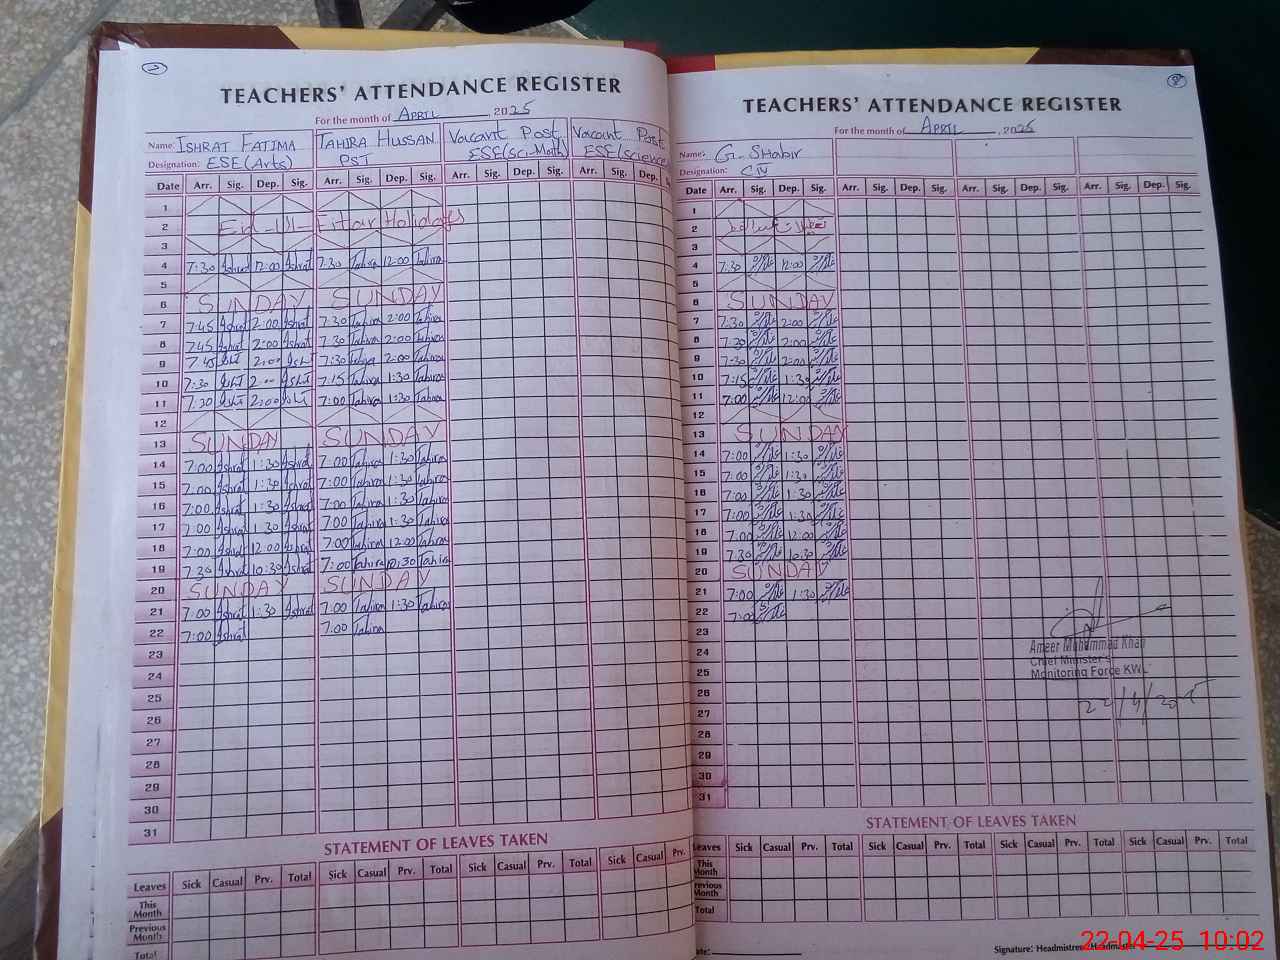 7
TEACHERS' ATTENDANCE REGISTER
For the month of APRIL, 2025
Name: ISHRAT FATIMA TAHIRA HUSSAN Vacant Post Vacant Post
Designation: ESE(Arts) PST ESE(Sci-Math) ESE(science
Date Arr. Sig. Dep. Sig. Arr. Sig. Dep. Sig. Arr. Sig. Dep. Sig. Arr. Sig. Dep.
1
2 Eid-Ul-Fitar Holidays
3
4 7:30 Ishrat 12:00 Ishrat 7:30 Tahira 12:00 Tahira
5
6 SUNDAY SUNDAY
7 7:45 Ishrat 2:00 Ishrat 7:30 Tahira 2:00 Tahira
8 7:45 Ishrat 2:00 Ishrat 7:30 Tahira 2:00 Tahira
9 7:45 Isht 2:00 Isht 7:30 Tahira 2:00 Tahira
10 7:30 Isht 2:00 Isht 7:15 Tahira 1:30 Tahira
11 7:30 Isht 2:00 Isht 7:00 Tahira 1:30 Tahira
12
13 SUNDAY SUNDAY
14 7:00 Ishrat 1:30 Ishrat 7:00 Tahira 1:30 Tahira
15 7:00 Ishrat 1:30 Ishrat 7:00 Tahira 1:30 Tahira
16 7:00 Ishrat 1:30 Ishrat 7:00 Tahira 1:30 Tahira
17 7:00 Ishrat 1:30 Ishrat 7:00 Tahira 1:30 Tahira
18 7:00 Ishrat 12:00 Ishrat 7:00 Tahira 12:00 Tahira
19 7:30 Ishrat 10:30 Ishrat 7:00 Tahira 10:30 Tahira
20 SUNDAY SUNDAY
21 7:00 Ishrat 1:30 Ishrat 7:00 Tahira 1:30 Tahira
22 7:00 Ishrat 7:00 Tahira
23
24
25
26
27
28
29
30
31
STATEMENT OF LEAVES TAKEN
Leaves Sick Casual Prv. Total Sick Casual Prv. Total Sick Casual Prv. Total Sick Casual Prv.
This Month
Previous Month
Total
8
TEACHERS' ATTENDANCE REGISTER
For the month of APRIL, 2025
Name: G. Shabir
Designation: CIV
Date Arr. Sig. Dep. Sig. Arr. Sig. Dep. Sig. Arr. Sig. Dep. Sig. Arr. Sig. Dep. Sig.
1
2
3
4 7:30 12:00
5
6 SUNDAY
7 7:30 2:00
8 7:30 2:00
9 7:30 2:00
10 7:15 1:30
11 7:00 12:00
12
13 SUNDAY
14 7:00 1:30
15 7:00 1:30
16 7:00 1:30
17 7:00 1:30
18 7:00 12:00
19 7:30 10:30
20 SUNDAY
21 7:00 1:30
22 7:00
23
24
25
26
27
28
29
30
31
Ameer Muhammad Khan
Chief Minister's
Monitoring Force KWL
22/4/2025
STATEMENT OF LEAVES TAKEN
Leaves Sick Casual Prv. Total Sick Casual Prv. Total Sick Casual Prv. Total Sick Casual Prv. Total
This Month
Previous Month
Total
Date: Signature: Headmistress/Headmaster
22-04-25 10:02